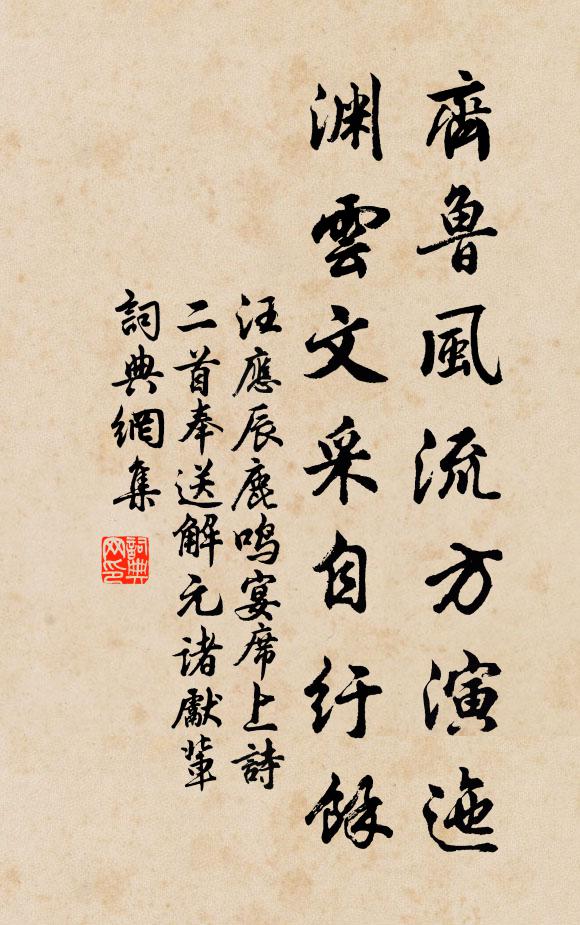 齊魯風流方演迤
淵雲文采自紆餘
汪應辰鹿鳴宴席上詩
二首奉送解元諸獻輩
詞典網集
詞典网印